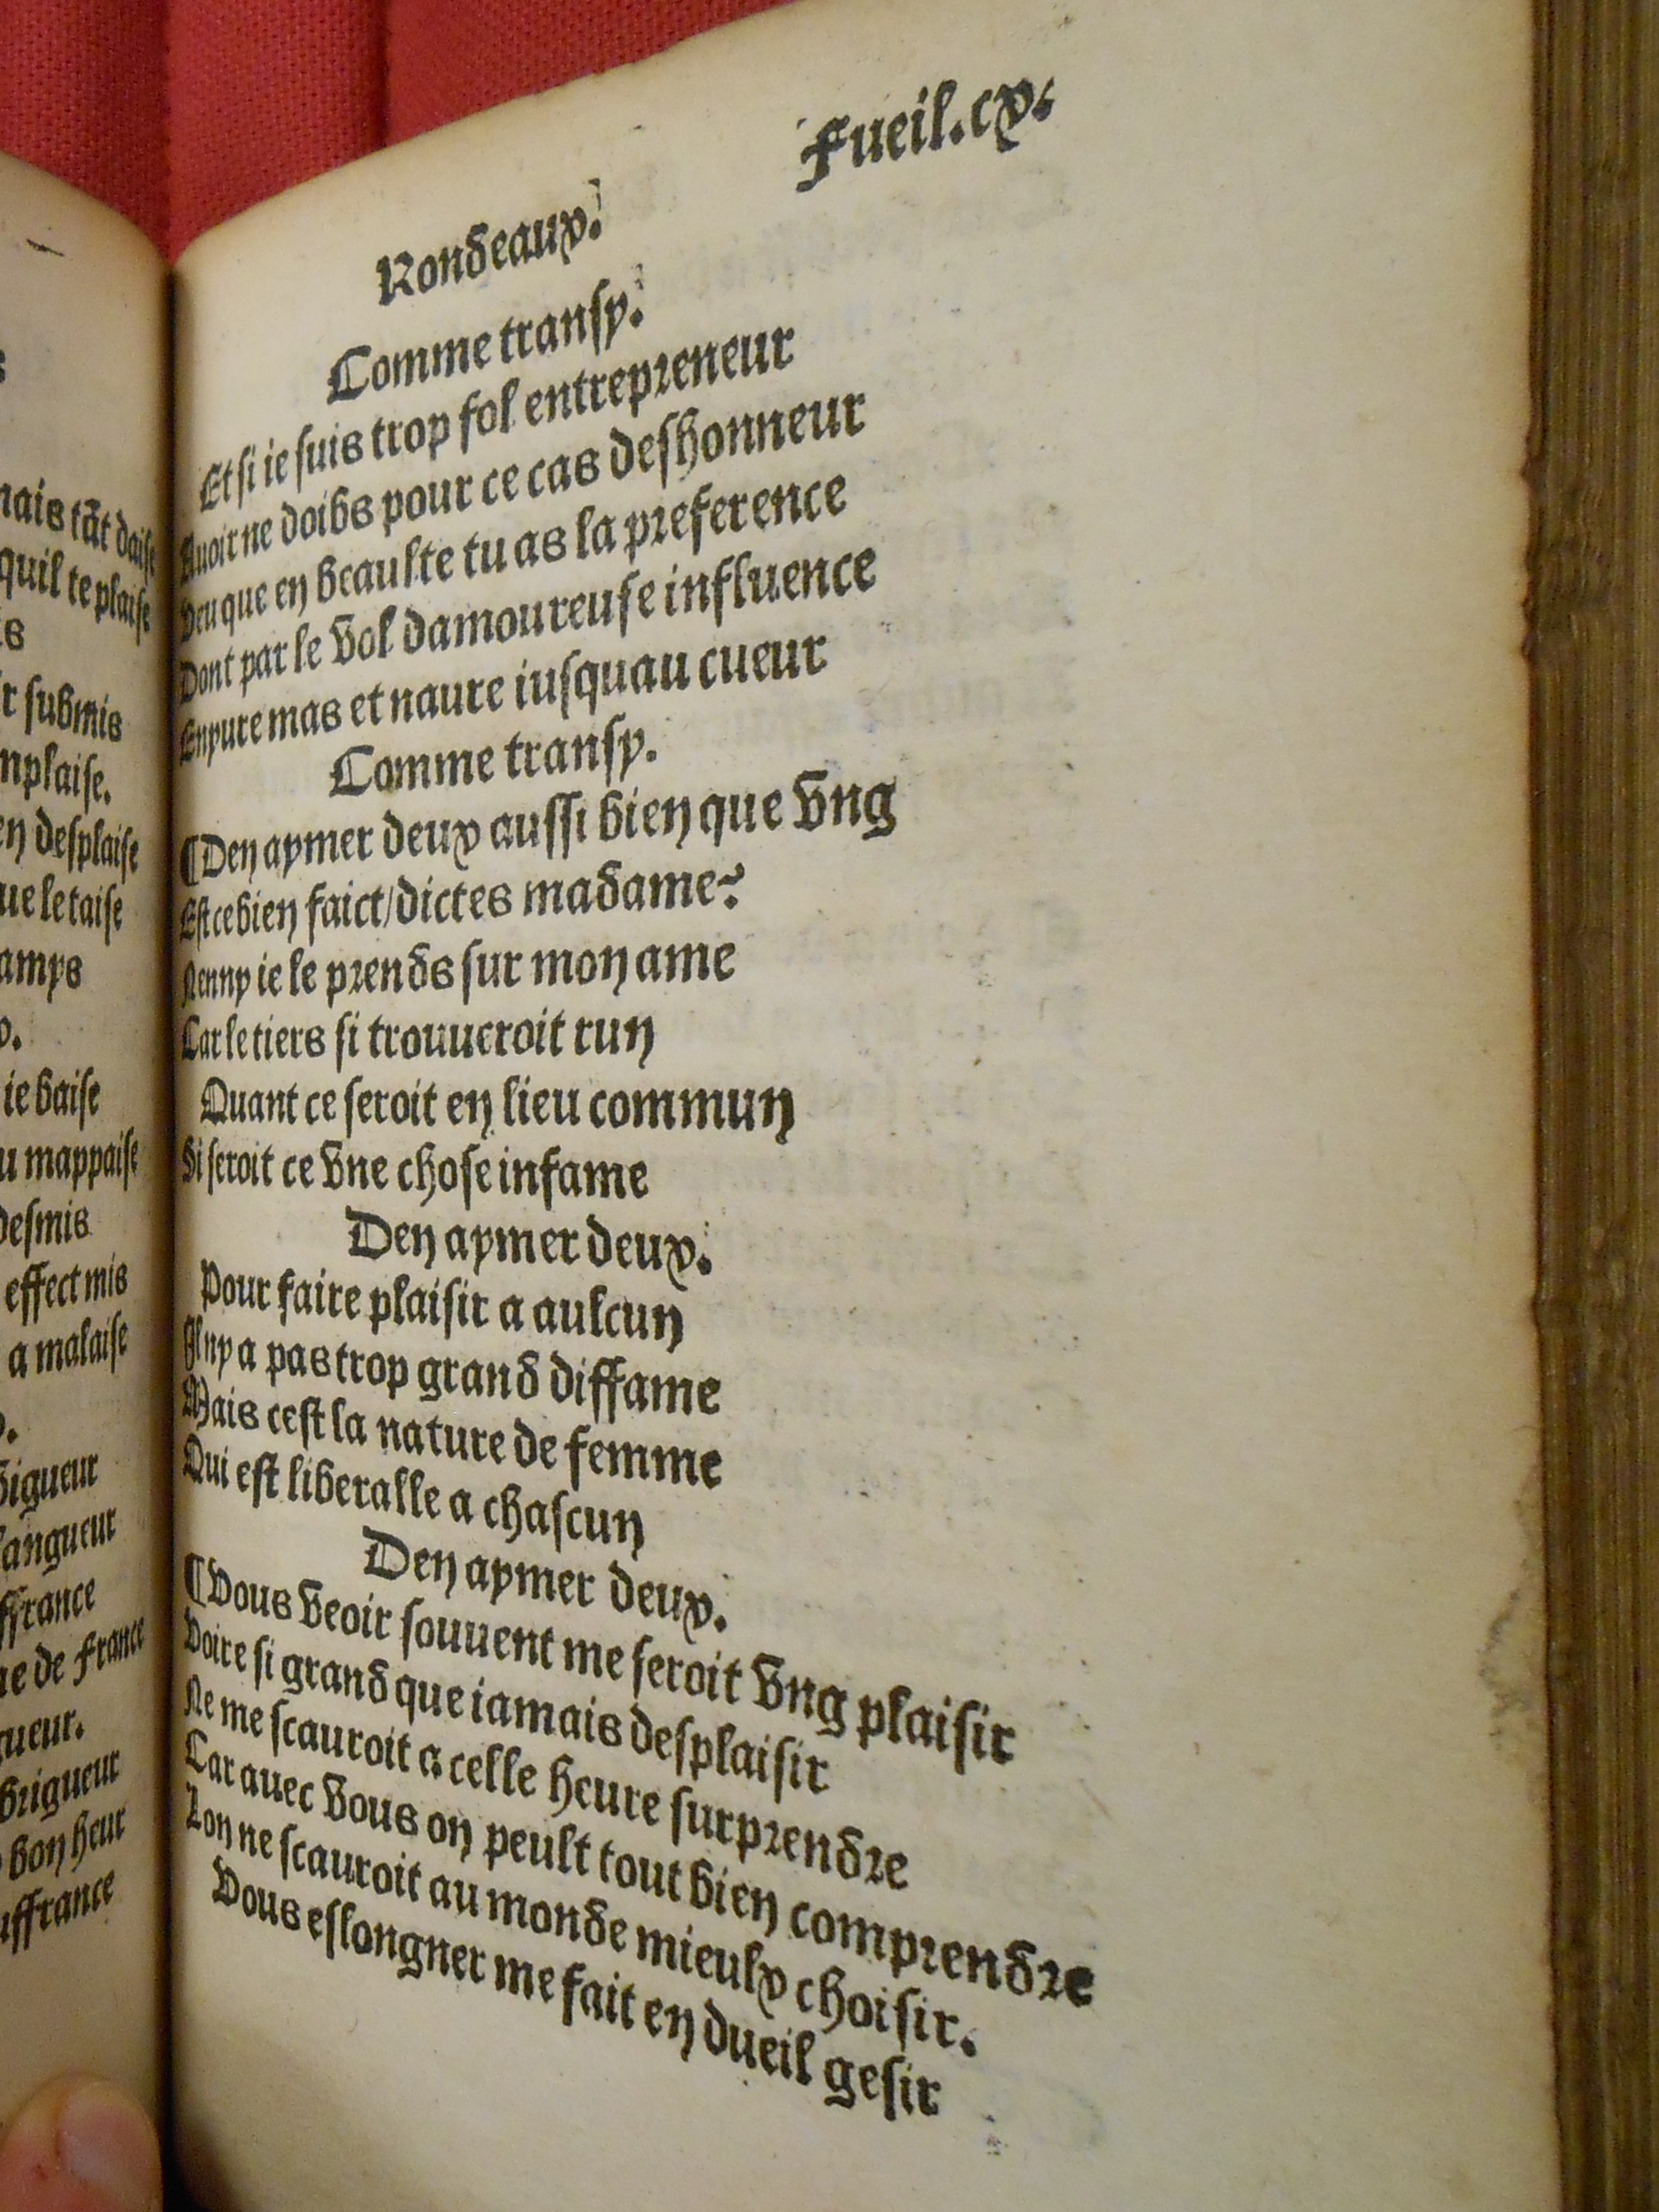 mais tāt daise
quil te plaise
submis
desplaise
ie baise
mappaise
effect mis
a malaise
de France
bon heur
Rondeaux.
Fueil.cx.
Comme transy.
Et si ie suis trop fol entrepreneur
Auoir ne doibs pour ce cas deshonneur
Veu que en beaulte tu as la preference
Dont par le vol damoureuse influence
En yure mas et naure iusquau cueur
Comme transy.
¶Den aymer deux aussi bien que vng
Est ce bien faict/dictes madame?
Nenny ie le prends sur mon ame
Car le tiers si trouueroit run
Quant ce seroit en lieu commun
Si seroit ce vne chose infame
Den aymer deux.
Pour faire plaisir a aulcun
Il ny a pas trop grand diffame
Mais cest la nature de femme
Qui est liberalle a chascun
Den aymer deux.
¶Vous veoir souuent me seroit vng plaisir
Voire si grand que iamais desplaisir
Ne me scauroit a celle heure surprendre
Car auec vous on peult tout bien comprendre
Lon ne scauroit au monde mieulx choisir.
Vous eslongner me fait en dueil gesir